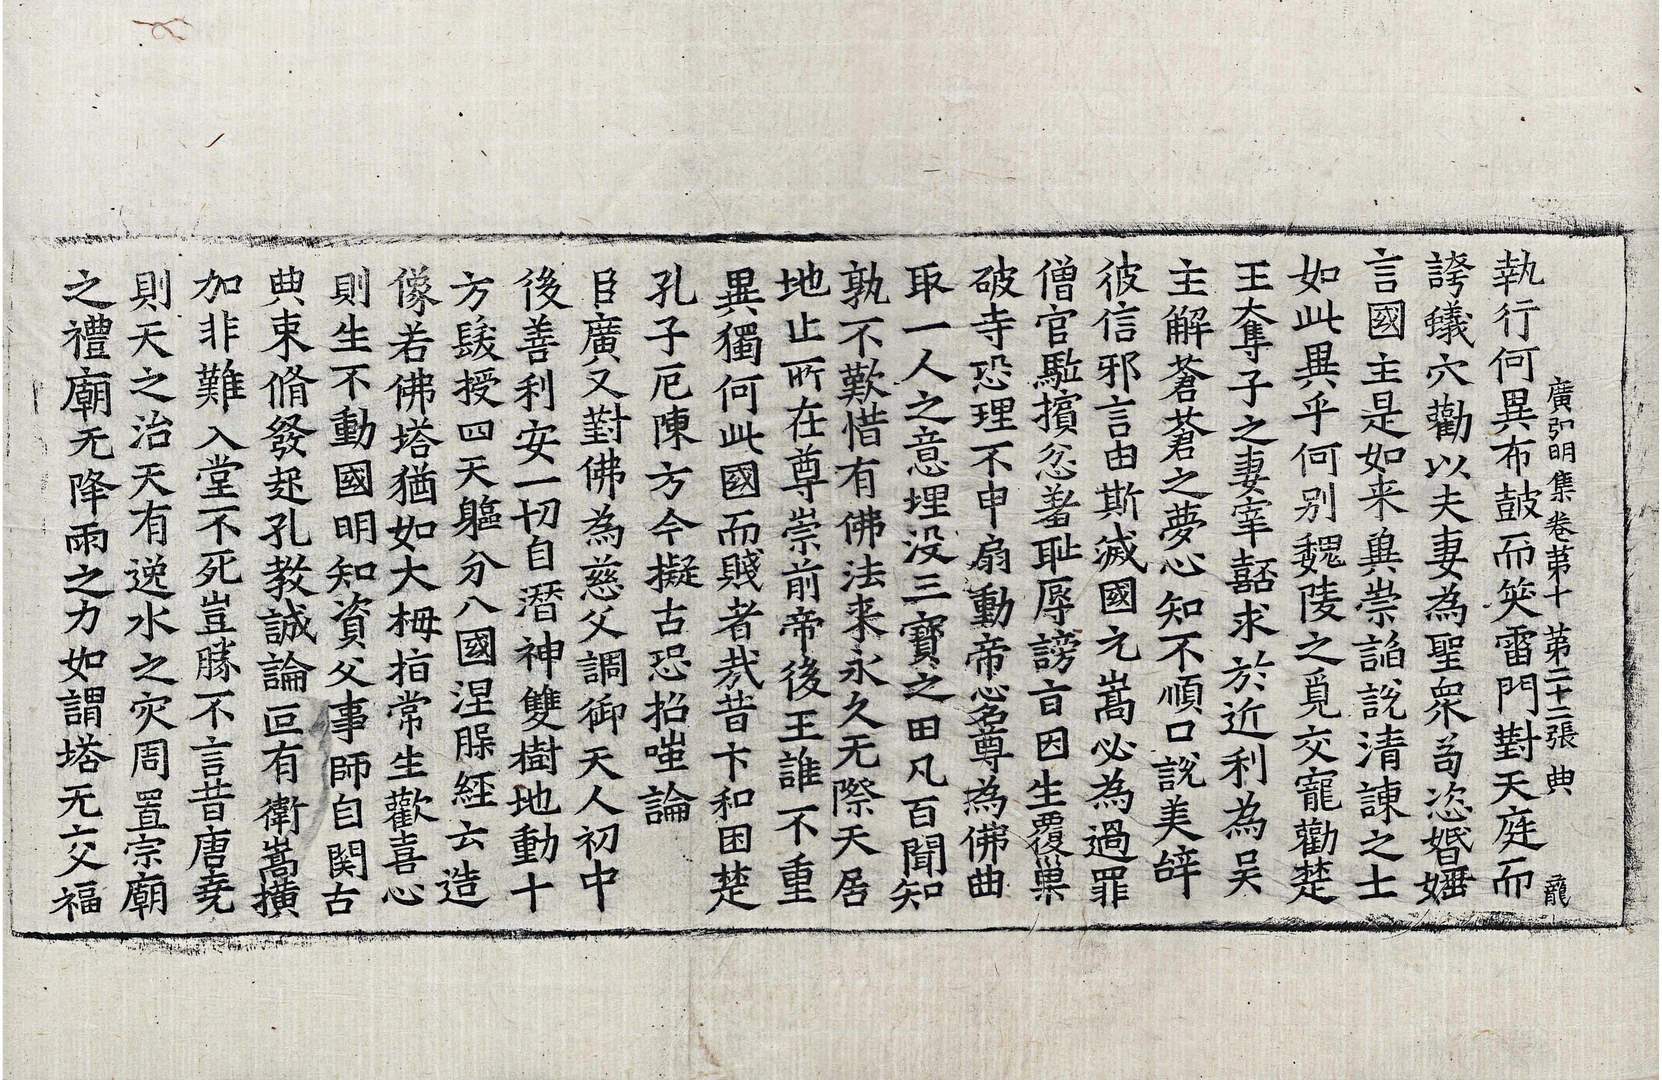 廣弘明集卷第十　第二十二張　典　龍
執行何異布皷而笑雷門對天庭而
誇蟻穴勸以夫妻為聖眾苟恣婚㜰
言國主是如来與崇諂說清諫之士
如此異乎何别魏陵之覓交寵勸楚
王奪子之妻宰嚭求於近利為吴
主解蒼蒼之夢心知不順口說美辝
彼信邪言由斯滅國元嵩必為過罪
僧官駈擯忿羞耻辱謗旨因生覆巢
破寺恐理不申扇動帝心名尊為佛曲
取一人之意埋没三寶之田凡百聞知
孰不歎惜有佛法来永久无際天居
地止所在尊崇前帝後王誰不重
異獨何此國而賤者㢤昔卞和困楚
孔子厄陳方今擬古恐招嗤論
臣廣又對佛為慈父調御天人初中
後善利安一切自潛神雙樹地動十
方髮授四天軀分八國涅槃經云造
像若佛塔猶如大栂指常生歡喜心
則生不動國明知資父事師自関古
典束脩發起孔教誠論叵有衛嵩橫
加非難入堂不死豈勝不言昔唐堯
則天之治天有逸水之灾周置宗廟
之禮廟无降雨之力如謂塔无交福